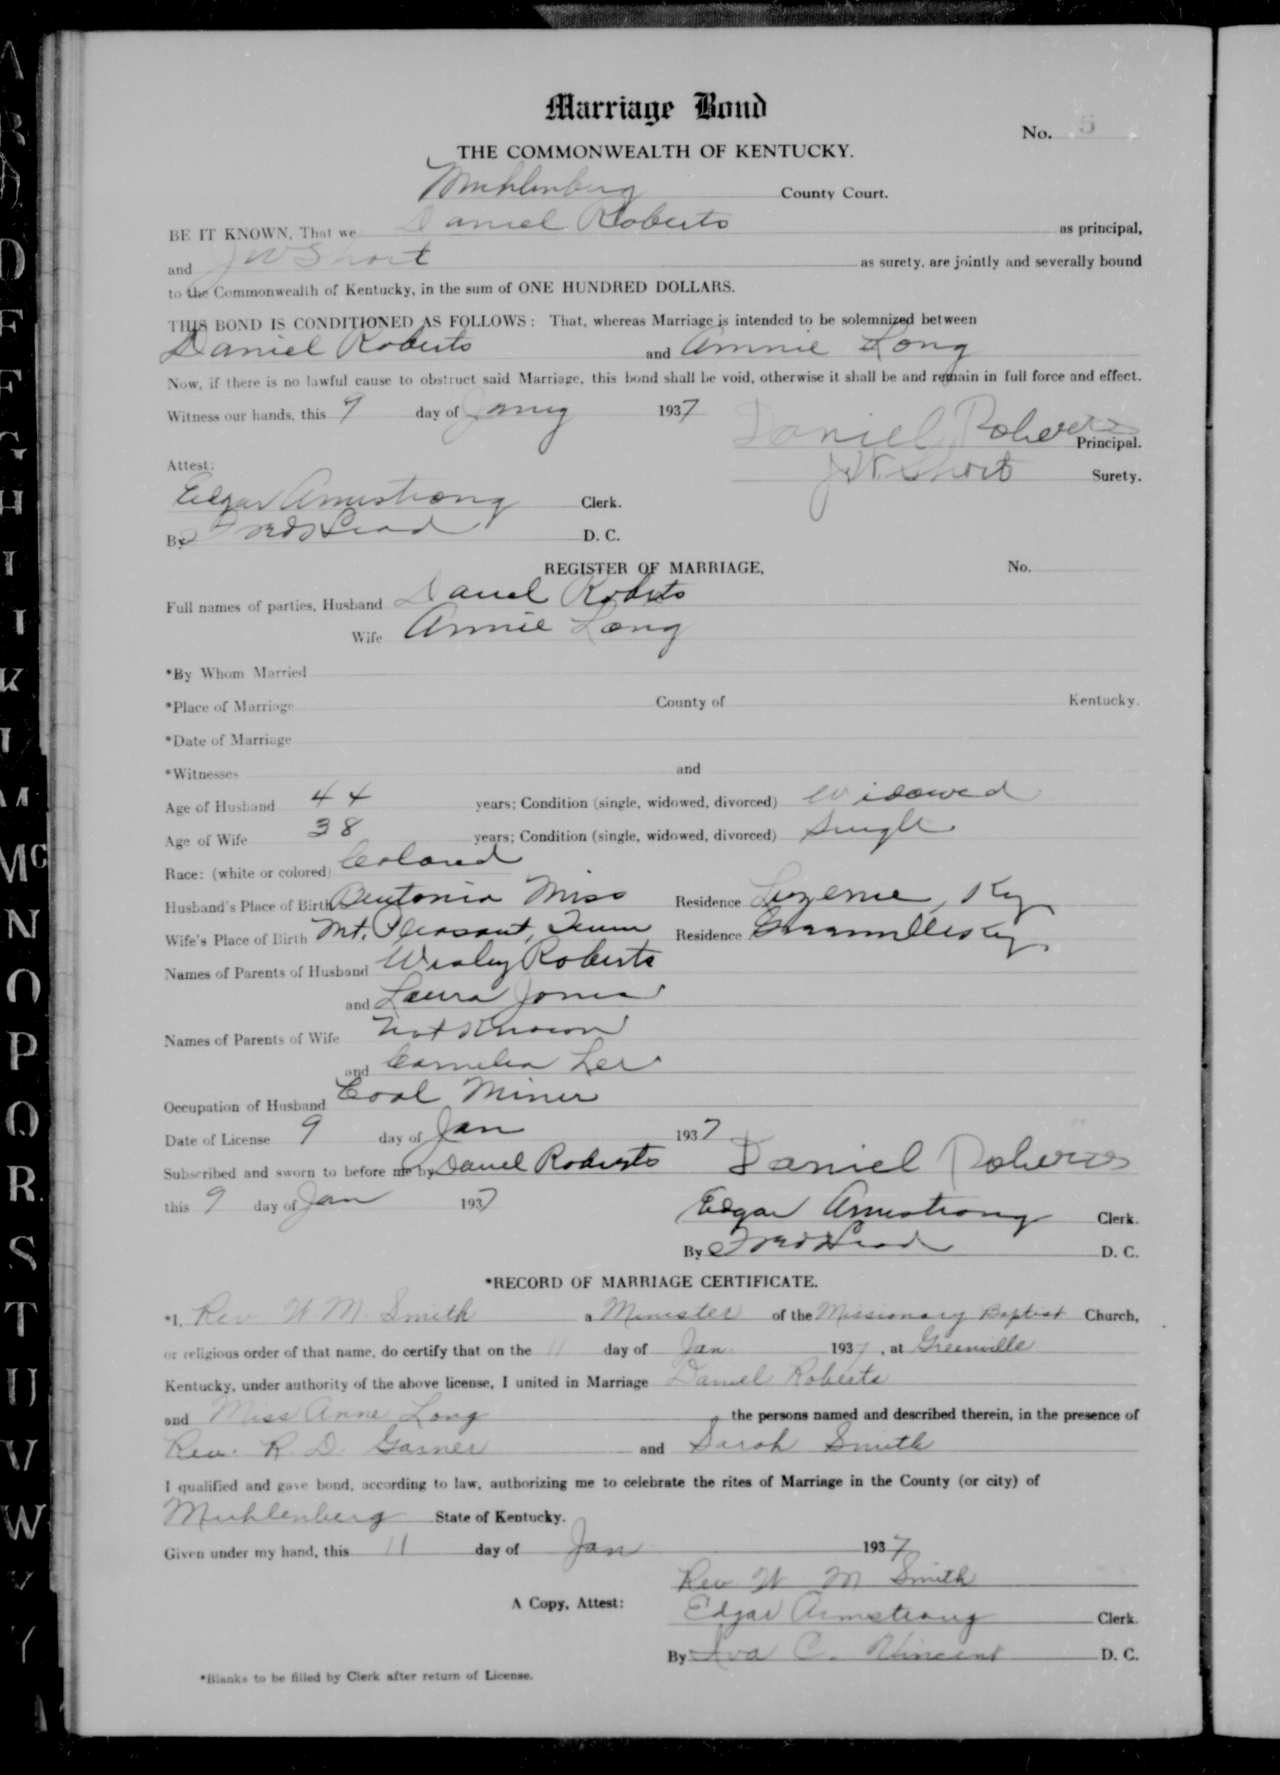 Marriage Bond
No. 5
THE COMMONWEALTH OF KENTUCKY.
Muhlenberg County Court.
BE IT KNOWN, That we Daniel Roberts as principal,
and J W Short as surety, are jointly and severally bound
to the Commonwealth of Kentucky, in the sum of ONE HUNDRED DOLLARS.
THIS BOND IS CONDITIONED AS FOLLOWS: That, whereas Marriage is intended to be solemnized between
Daniel Roberts and Annie Long
Now, if there is no lawful cause to obstruct said Marriage, this bond shall be void, otherwise it shall be and remain in full force and effect.
Witness our hands, this 9 day of 1937
Daniel Roberts Principal.
J W Short Surety.
Attest:
Edgar Armstrong Clerk.
By Fred Head D. C.
REGISTER OF MARRIAGE, No.
Full names of parties, Husband Daniel Roberts
Wife Annie Long
*By Whom Married
*Place of Marriage County of Kentucky.
*Date of Marriage
*Witnesses and
Age of Husband 44 years; Condition (single, widowed, divorced) Widowed
Age of Wife 38 years; Condition (single, widowed, divorced) Single
Race: (white or colored) Colored
Husband's Place of Birth Bentonia Miss Residence Luzerne, Ky
Wife's Place of Birth Mt. Pleasant, Tenn Residence Greenville Ky
Names of Parents of Husband Wesley Roberts
and Laura Jones
Names of Parents of Wife Not Known
and Cornelia Lee
Occupation of Husband Coal Miner
Date of License 9 day of Jan 1937
Subscribed and sworn to before me by Daniel Roberts Daniel Roberts
this 9 day of Jan 1937
Edgar Armstrong Clerk.
By Fred Head D. C.
*RECORD OF MARRIAGE CERTIFICATE.
*I, Rev. W M. Smith a Minister of the Missionary Baptist Church,
or religious order of that name, do certify that on the 11 day of Jan. 1937, at Greenville
Kentucky, under authority of the above license, I united in Marriage Daniel Roberts
and Miss Anne Long the persons named and described therein, in the presence of
Rev. R. D. Garner and Sarah Smith
I qualified and gave bond, according to law, authorizing me to celebrate the rites of Marriage in the County (or city) of
Muhlenberg State of Kentucky.
Given under my hand, this 11 day of Jan 1937
Rev W M Smith
A Copy, Attest: Edgar Armstrong Clerk.
By Iva C. Vincent D. C.
*Blanks to be filled by Clerk after return of License.
A
B
D
F
F
G
H
I
J
K
L
M
Mc
N
O
P
Q
R
S
T
U
V
W
Y